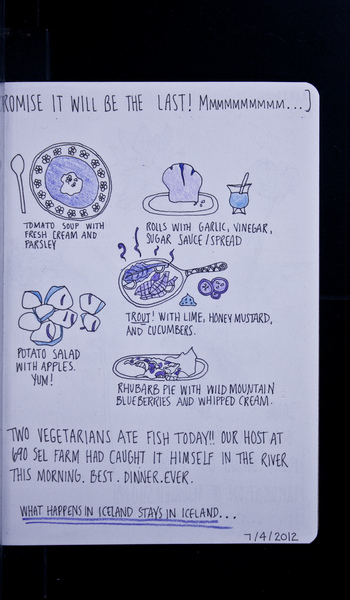 ROMISE IT WILL BE THE LAST! MMMMMMMMMM...]
TOMATO SOUP WITH
FRESH CREAM AND
PARSLEY
ROLLS WITH GARLIC, VINEGAR,
SUGAR SAUCE/SPREAD
TROUT! WITH LIME, HONEY MUSTARD,
AND CUCUMBERS.
POTATO SALAD
WITH APPLES.
YUM!
RHUBARB PIE WITH WILD MOUNTAIN
BLUEBERRIES AND WHIPPED CREAM.
TWO VEGETARIANS ATE FISH TODAY!! OUR HOST AT
SEL FARM HAD CAUGHT IT HIMSELF IN THE RIVER
THIS MORNING. BEST. DINNER. EVER.
WHAT HAPPENS IN ICELAND STAYS IN ICELAND...
7/4/2012